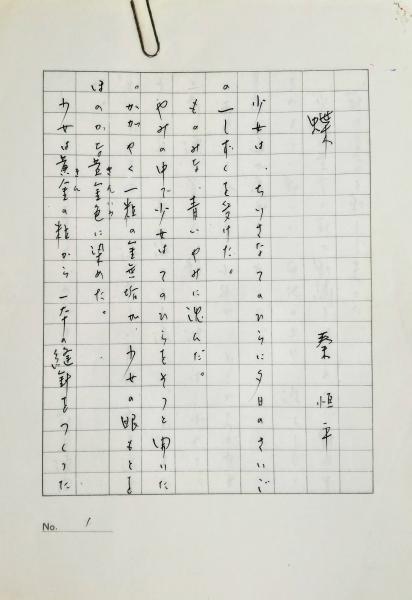 蝶
秦 恒平
少女は、ちいさなてのひらに夕日のさいご
の一しずくを受けた。
ものみな、青いやみに沈んだ。
やみの中で少女はてのひらをそっと開いた
。かがやく一粒の金無垢が、少女の眼もとを
ほのかな黄金色に染めた。
きんいろ
少女は黄金の粒から一本の縫針をつくった
きん
No. 1